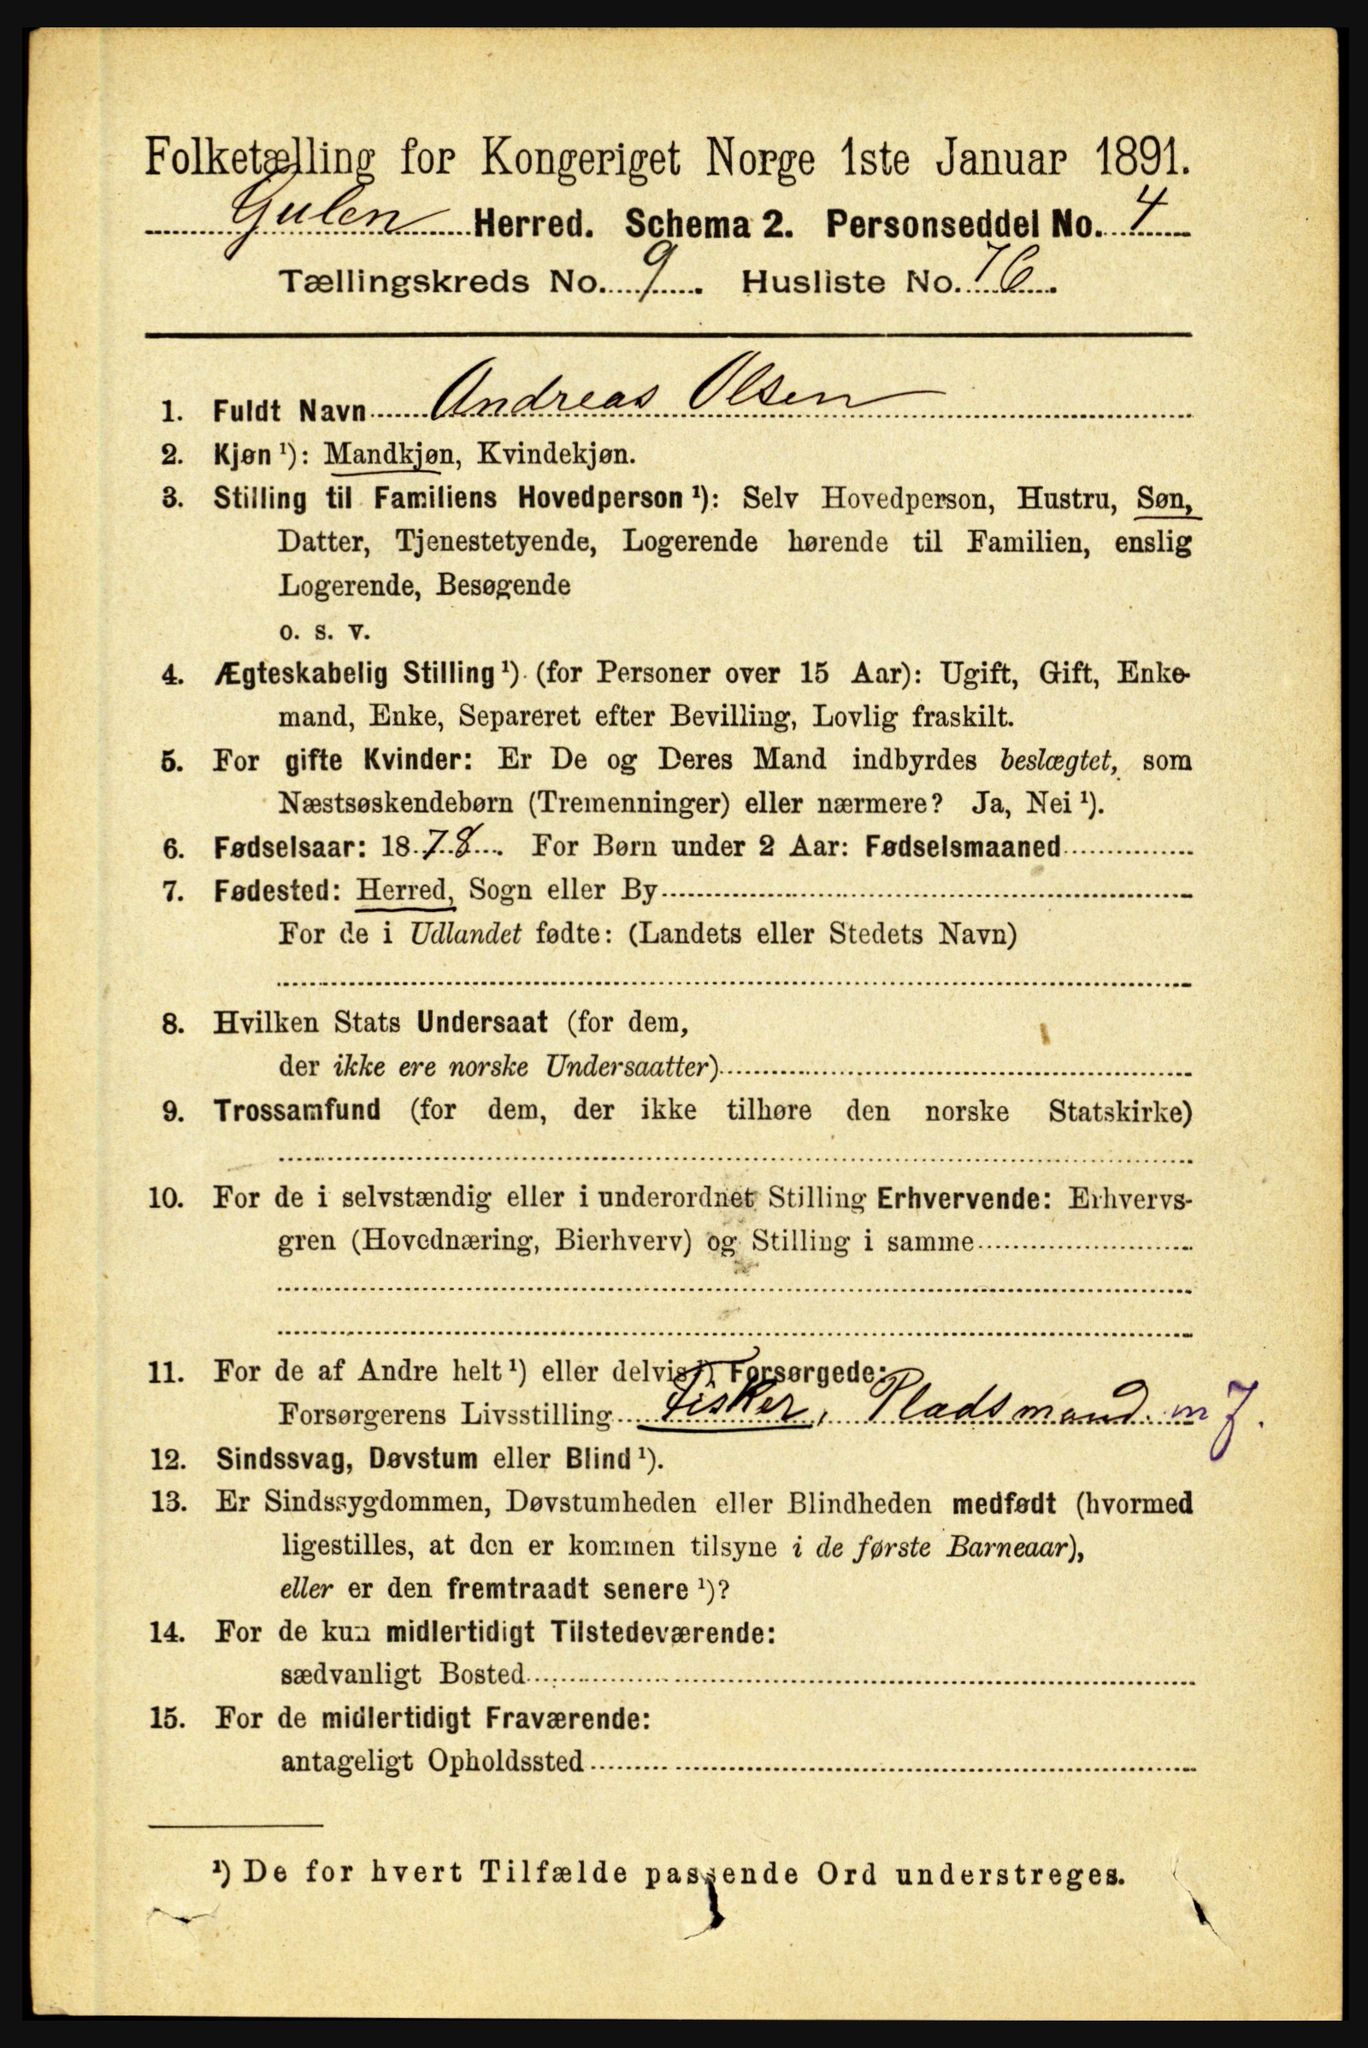 Folketælling for Kongeriget Norge 1ste Januar 1891.
Gulen Herred. Schema 2. Personseddel No. 4
Tællingskreds No. 9. Husliste No. 76.
1. Fuldt Navn Andreas Olsen
2. Kjøn ¹): Mandkjøn, Kvindekjøn.
3. Stilling til Familiens Hovedperson ¹): Selv Hovedperson, Hustru, Søn,
Datter, Tjenestetyende, Logerende hørende til Familien, enslig
Logerende, Besøgende
o. s. v.
4. Ægteskabelig Stilling ¹) (for Personer over 15 Aar): Ugift, Gift, Enke-
mand, Enke, Separeret efter Bevilling, Lovlig fraskilt.
5. For gifte Kvinder: Er De og Deres Mand indbyrdes beslægtet, som
Næstsøskendebørn (Tremenninger) eller nærmere? Ja, Nei ¹).
6. Fødselsaar: 1878. For Børn under 2 Aar: Fødselsmaaned
7. Fødested: Herred, Sogn eller By
For de i Udlandet fødte: (Landets eller Stedets Navn)
8. Hvilken Stats Undersaat (for dem,
der ikke ere norske Undersaatter)
9. Trossamfund (for dem, der ikke tilhøre den norske Statskirke)
10. For de i selvstændig eller i underordnet Stilling Erhvervende: Erhvervs-
gren (Hovednæring, Bierhverv) og Stilling i samme
11. For de af Andre helt ¹) eller delvis ¹) Forsørgede:
Forsørgerens Livsstilling Fisker, Pladsmand. m J.
12. Sindssvag, Døvstum eller Blind ¹).
13. Er Sindssygdommen, Døvstumheden eller Blindheden medfødt (hvormed
ligestilles, at den er kommen tilsyne i de første Barneaar),
eller er den fremtraadt senere ¹)?
14. For de kun midlertidigt Tilstedeværende:
sædvanligt Bosted
15. For de midlertidigt Fraværende:
antageligt Opholdssted
¹) De for hvert Tilfælde passende Ord understreges.